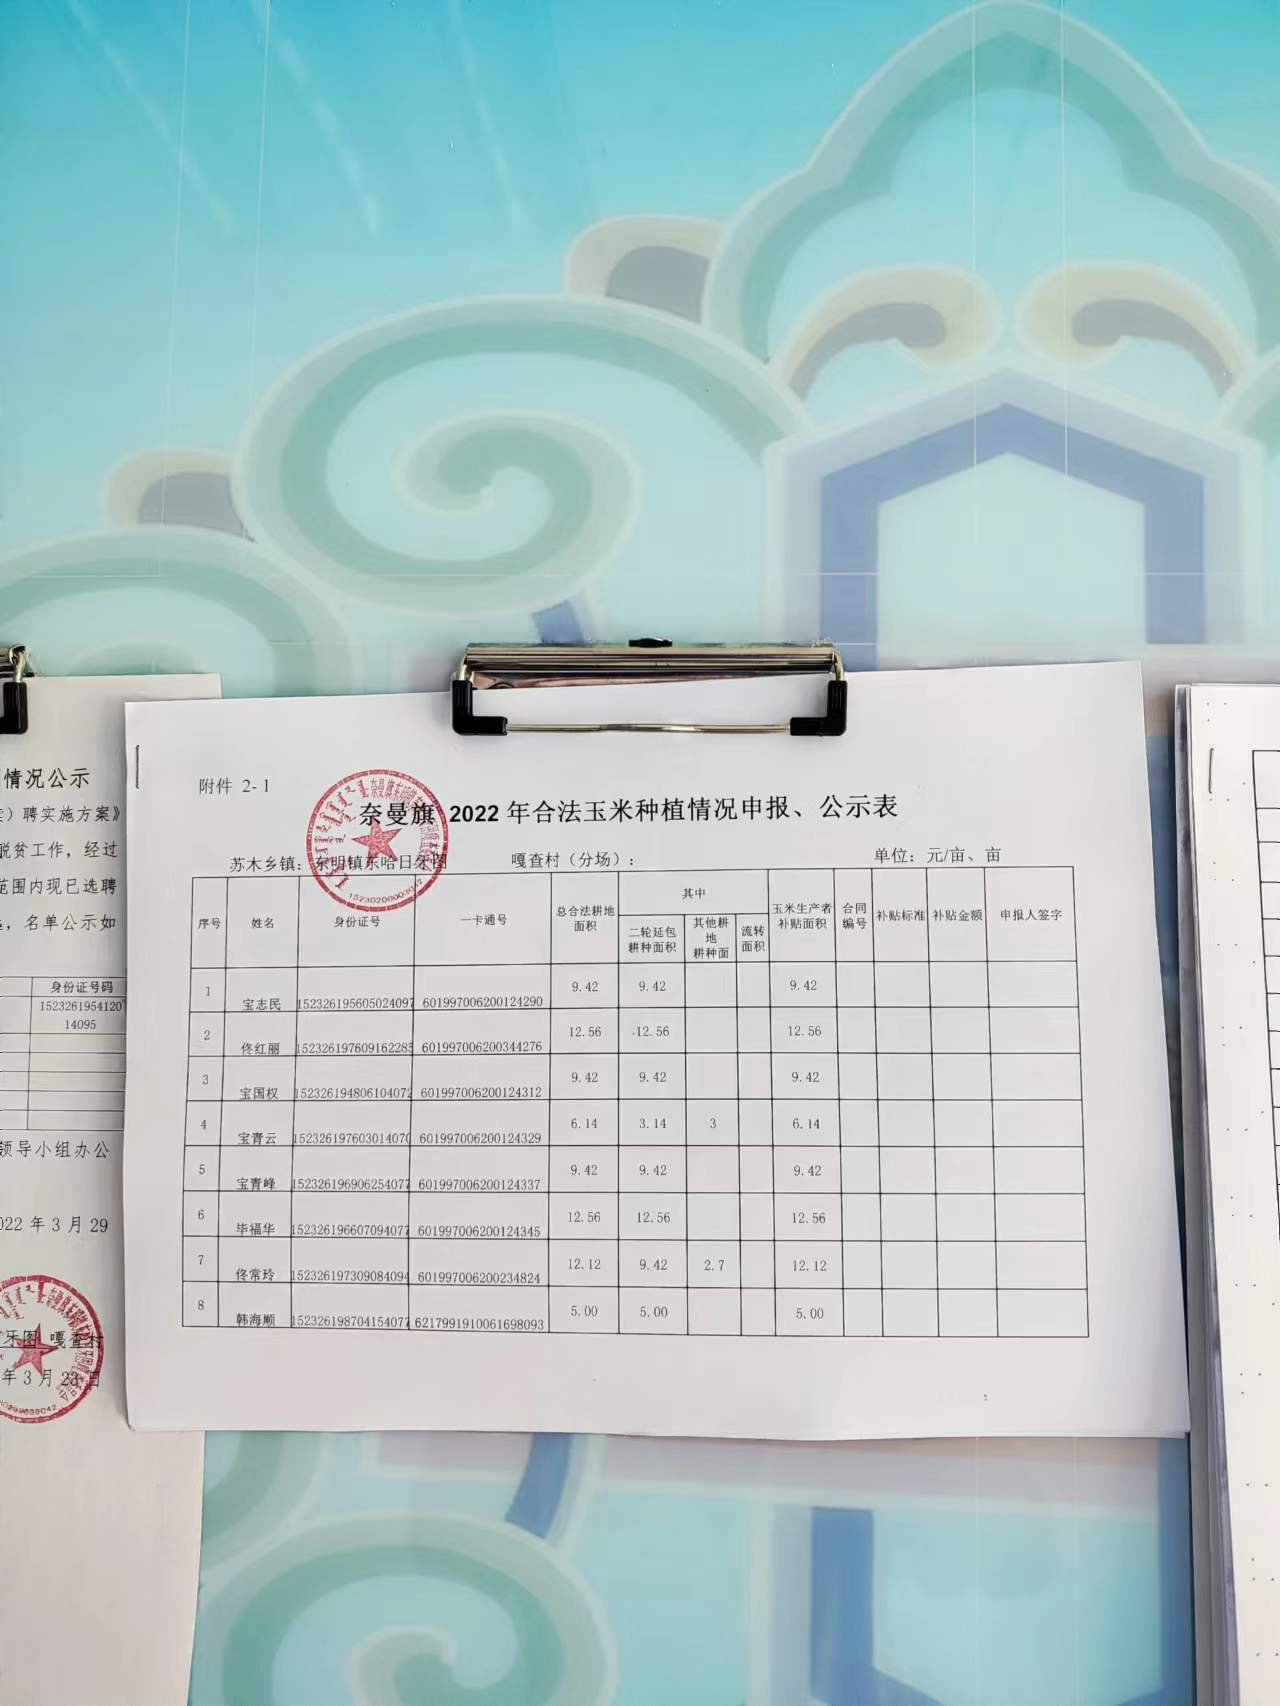 情况公示
）聘实施方案》
脱贫工作，经过
范围内现已选聘
，名单公示如
身份证号码
1523261954120
14095
领导小组办公
022 年 3 月 29
牙图 嘎查村
年 3 月 23 日
附件 2-1
奈曼旗 2022 年合法玉米种植情况申报、公示表
苏木乡镇：东明镇东哈日牙图 嘎查村（分场）： 单位：元/亩、亩
序号 姓名 身份证号 一卡通号 总合法耕地面积 其中 玉米生产者补贴面积 合同编号 补贴标准 补贴金额 申报人签字
二轮延包耕种面积 其他耕地耕种面 流转面积
1 宝志民 152326195605024097 601997006200124290 9.42 9.42 9.42
2 佟红丽 152326197609162285 601997006200344276 12.56 12.56 12.56
3 宝国权 152326194806104072 601997006200124312 9.42 9.42 9.42
4 宝青云 152326197603014070 601997006200124329 6.14 3.14 3 6.14
5 宝青峰 152326196906254077 601997006200124337 9.42 9.42 9.42
6 毕福华 152326196607094077 601997006200124345 12.56 12.56 12.56
7 佟常玲 152326197309084094 601997006200234824 12.12 9.42 2.7 12.12
8 韩海顺 152326198704154077 6217991910061698093 5.00 5.00 5.00